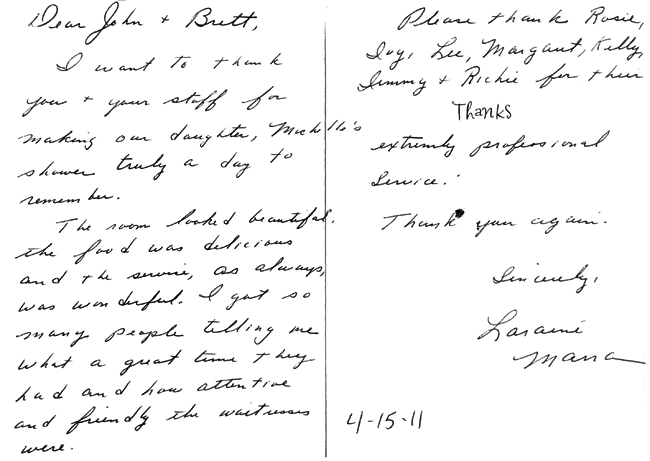 Dear John + Brett,
I want to thank
you + your staff for
making our daughter, Michelle's
shower truly a day to
remember.
The room looked beautiful,
the food was delicious
and the service, as always,
was wonderful. I got so
many people telling me
what a great time they
had and how attentive
and friendly the waitresses
were.
Please thank Rosie,
Ivy, Lee, Margaret, Kelly,
Jimmy + Richie for their
Thanks
extremly professional
service.
Thank you again.
Sincerely,
Laraine
4-15-11